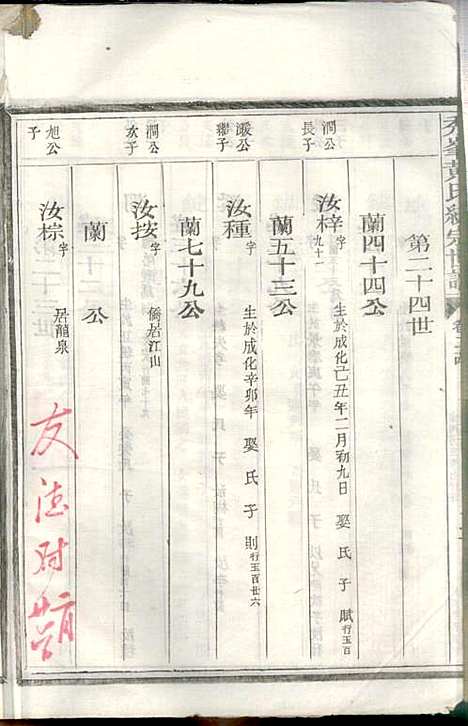 黃氏統宗世譜
第二十四世
蘭四十四公
澗公長子
汝梓 字九十一 生於成化己丑年二月初九日 娶 氏 子 賦 行玉百
蘭五十三公
汝種 字 生於成化辛卯年 娶 氏 子 則 行玉百廿六
蘭七十九公
澗公次子
汝按 字 僑居江山
蘭 公
旭公子
汝棕 字 居龍泉
友德对